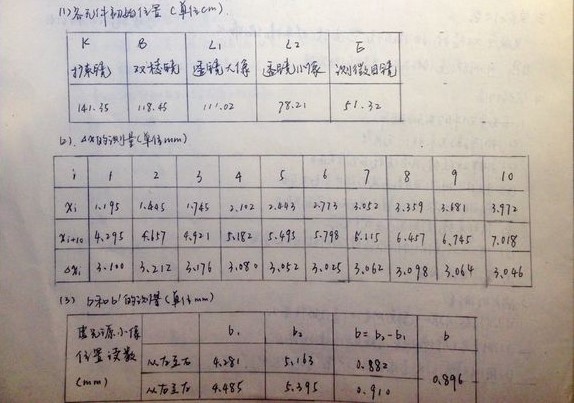 (1) 各元件初始位置 (单位cm)
K B L1 L2 E
扩束镜 双棱镜 透镜大像 透镜小像 测微目镜
141.35 118.45 111.02 78.21 51.32
(2) Δx的测量(单位mm)
i 1 2 3 4 5 6 7 8 9 10
xi 1.195 1.445 1.745 2.102 2.443 2.773 3.052 3.359 3.681 3.972
xi+10 4.295 4.657 4.921 5.182 5.495 5.798 6.115 6.457 6.745 7.018
Δxi 3.100 3.212 3.176 3.080 3.052 3.025 3.062 3.098 3.064 3.046
(3) b和b'的测量(单位mm)
虚光源小像 b1 b2 b=b2-b1 b
位置读数 从左至右 4.281 5.163 0.882 0.896
(mm) 从右至左 4.485 5.395 0.910